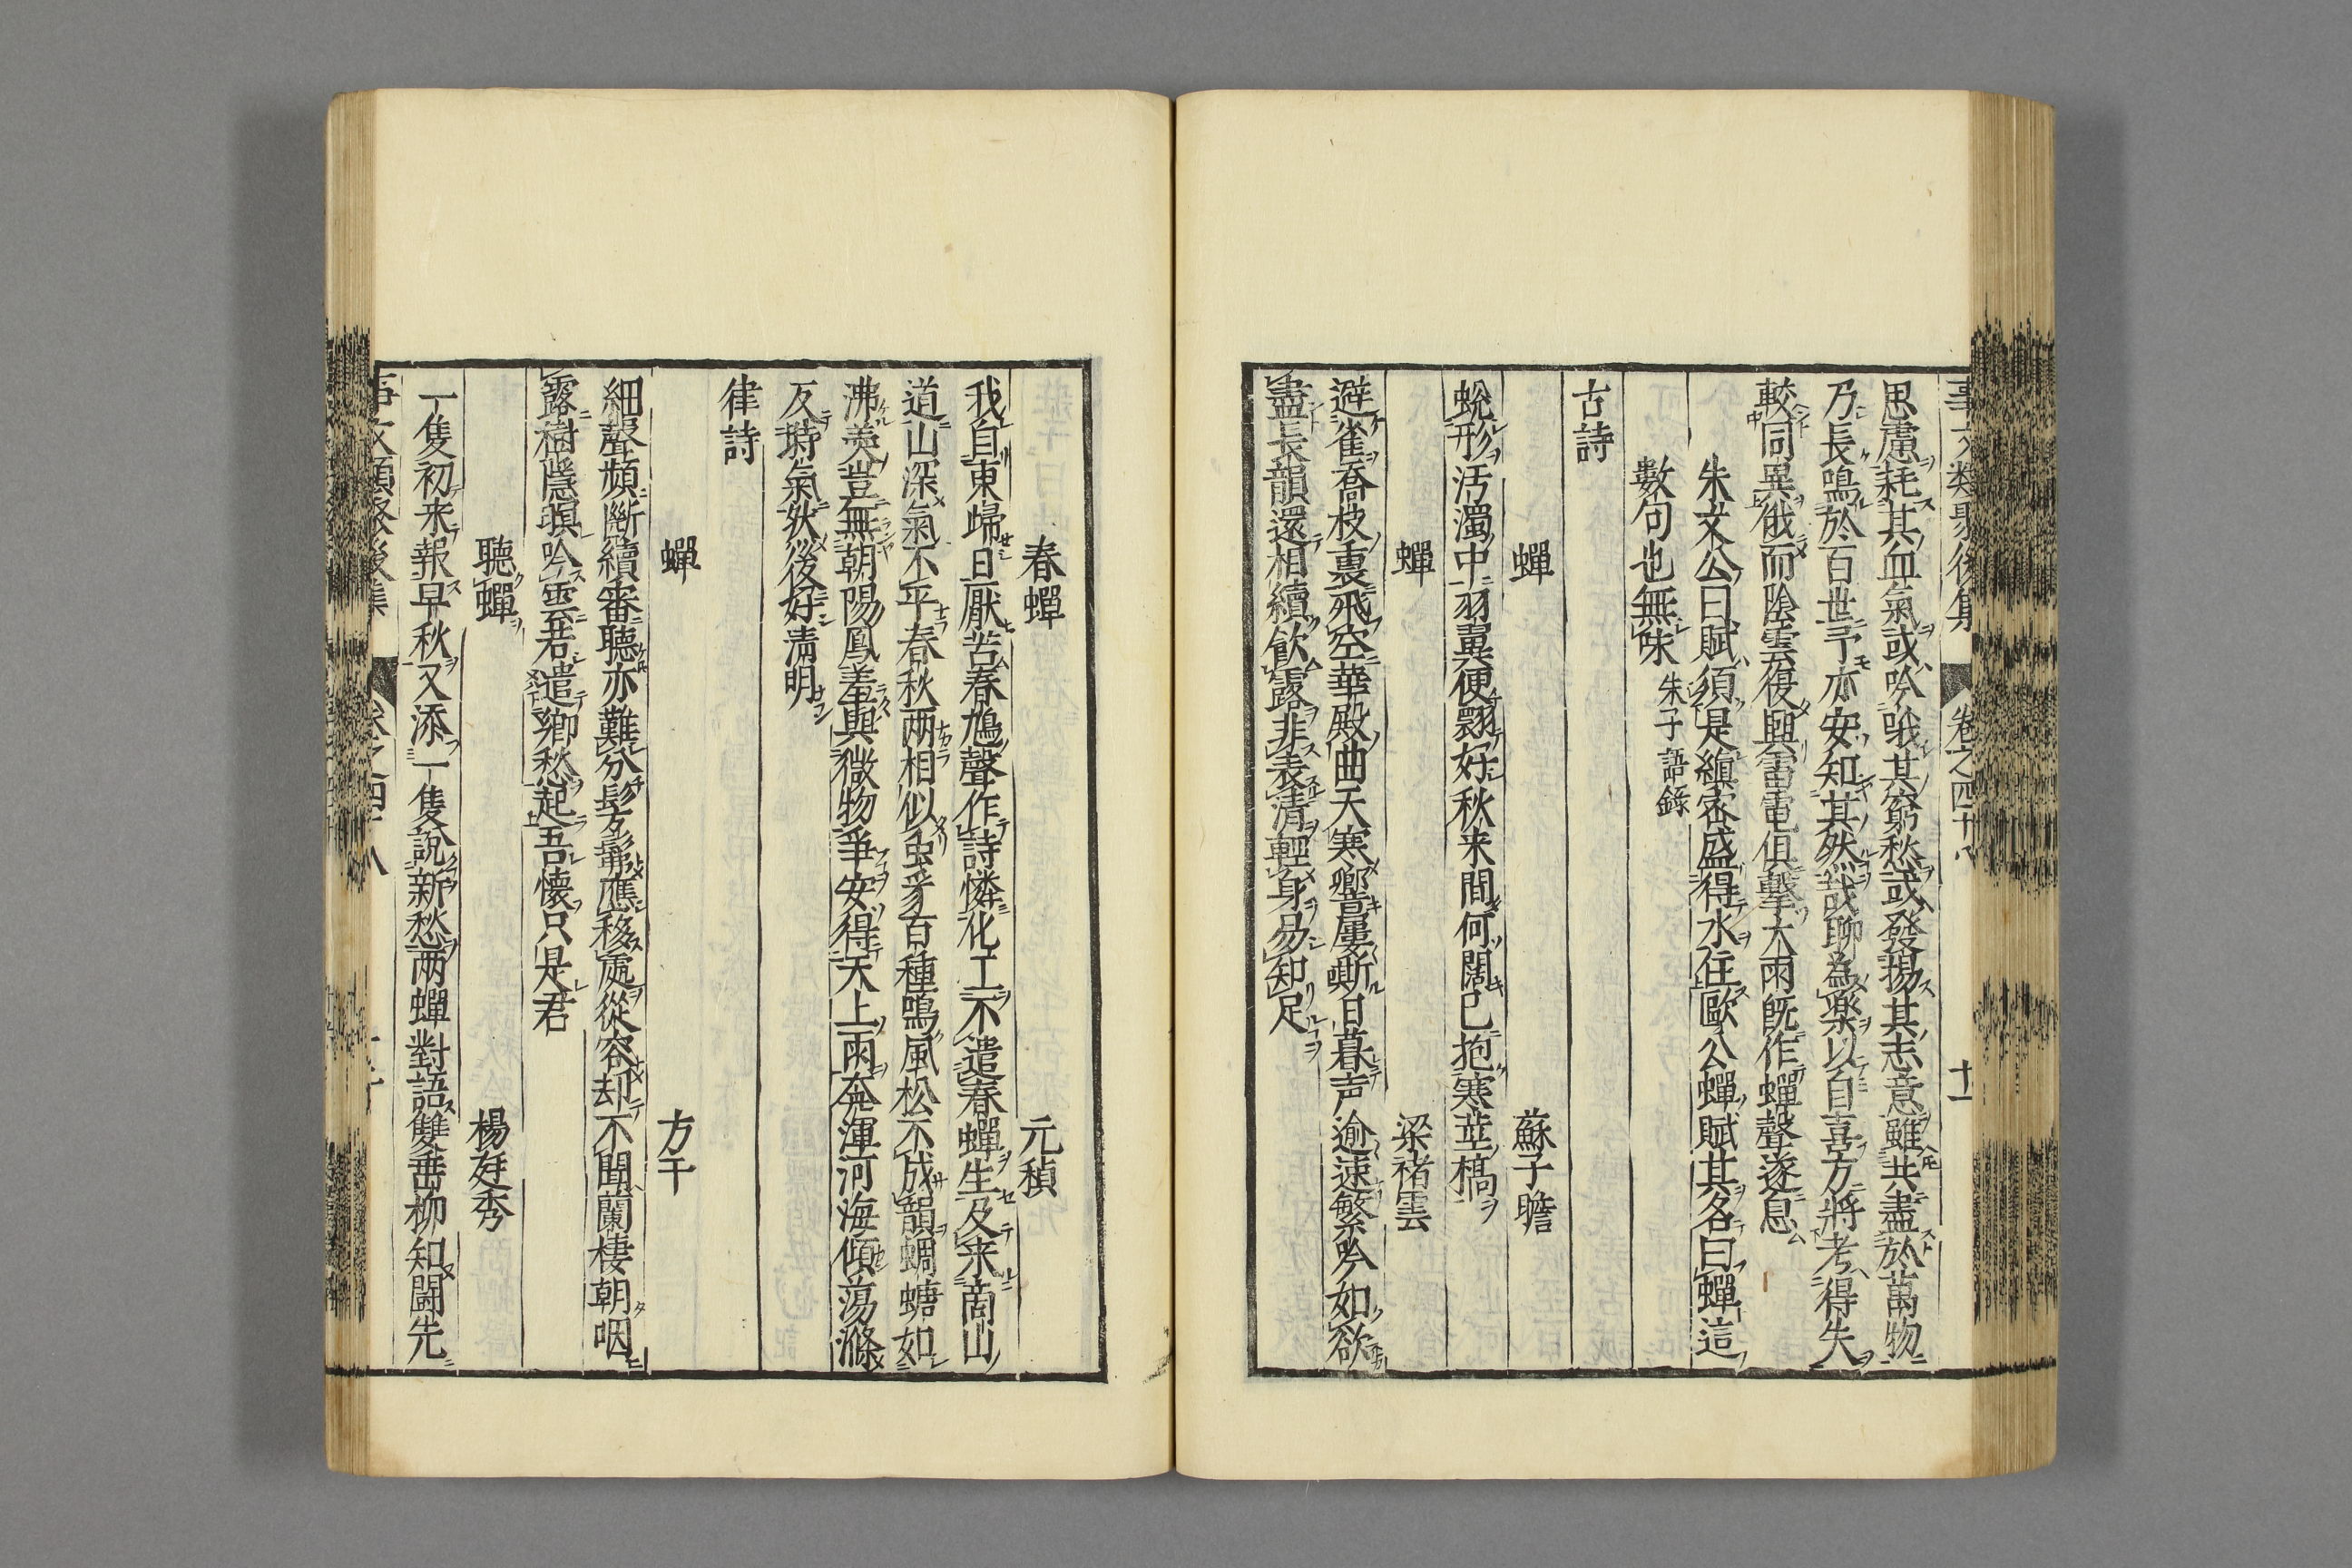 事文類聚後集 卷之四十八 十一
思慮耗其血氣或吟哦其窮愁或發揚其志意雖共盡於萬物
乃長鳴於百世予亦安知其然哉聊為樂以自喜方將考得失
較同異俄而陰雲復興雷電俱擊大雨既作蟬聲遂息
朱文公曰賦須是縝密盛得水住歐公蟬賦其名曰蟬這
數句也無味 朱子語錄
古詩
蟬 蘇子瞻
蛻形汚濁中羽翼便翾好秋来間何闊已抱寒莖槁
蟬 梁褚雲
避雀喬枝裏飛空華殿曲天寒響屢嘶日暮声逾速繁吟如欲
盡長韻還相續飲露非表清輕身易知足
春蟬 元稹
我自東歸日厭苦春鳩聲作詩憐化工不遣春蟬生及来商山
道山深氣不平春秋两相似虫豸百種鳴風松不成韻蜩螗如
沸羮豈無朝陽鳳羞與微物爭安得天上雨奔渾河海傾蕩滌
反時氣然後好清明
律詩
蟬 方干
細聲頻斷續審聽亦難分髣髴應移處從容却不聞蘭棲朝咽
露樹隱暝吟雲若遣卿愁起吾懷只是君
聴蟬 楊廷秀
一隻初来報早秋又添一隻說新愁两蟬對語雙垂柳知鬪先
事文類聚後集 卷之四十八